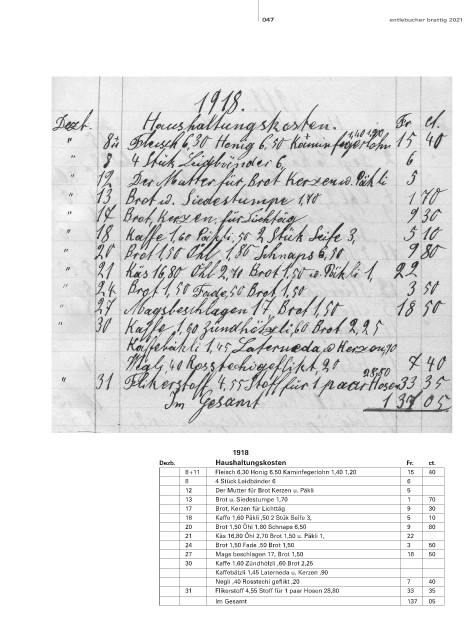 047
entlebucher brattig 2021
1918.
Dezt. Haushaltungskosten. Fr. ct.
" 8+11 Fleisch 6,30 Honig 6,50 Kaminfegerlohn 1,40 1,20 15 40
" 8 4 Stük Leidbänder 6, 6
" 12 Der Mutter für Brot Kerzen u. Päkli 5
" 13 Brot u. Siedestumpe 1,70 1 70
" 17 Brot, Kerzen, für Lichttäg 9 30
" 18 Kaffe 1,60 Päkli,50 2 Stük Seife 3, 5 10
" 20 Brot 1,50 Öhl 1,80 Schnaps 6,50 9 80
" 21 Käs 16,80 Öhl 2,70 Brot 1,50 u. Päkli 1, 22
" 24 Brot 1,50 Fade,50 Brot 1,50 3 50
" 27 Magsbeschlagen 17, Brot 1,50 18 50
" 30 Kaffe 1,60 Zündhölzli,60 Brot 2,25
Kaffebätzli 1,45 Laterneda u Kerzen,90
Negli,40 Rosstechigeflikt,20 7 40
" 31 Flikerstoff 4,55 Stoff für 1 paar Hosen 28,80 33 35
Im Gesamt 137 05
1918
Dezb. Haushaltungskosten Fr. ct.
8+11 Fleisch 6,30 Honig 6,50 Kaminfegerlohn 1,40 1,20 15 40
8 4 Stück Leidbänder 6 6
12 Der Mutter für Brot Kerzen u. Päkli 5
13 Brot u. Siedestumpe 1,70 1 70
17 Brot, Kerzen für Lichttäg 9 30
18 Kaffe 1,60 Päkli ,50 2 Stük Seife 3, 5 10
20 Brot 1,50 Öhl 1,80 Schnaps 6,50 9 80
21 Käs 16,80 Öhl 2,70 Brot 1,50 u. Päkli 1, 22
24 Brot 1,50 Fade ,50 Brot 1,50 3 50
27 Mags beschlagen 17, Brot 1,50 18 50
30 Kaffe 1,60 Zündhölzli ,60 Brot 2,25
Kaffebätzli 1,45 Laterneda u. Kerzen ,90
Negli ,40 Rosstechi geflikt ,20 7 40
31 Flikerstoff 4,55 Stoff für 1 paar Hosen 28,80 33 35
Im Gesamt 137 05